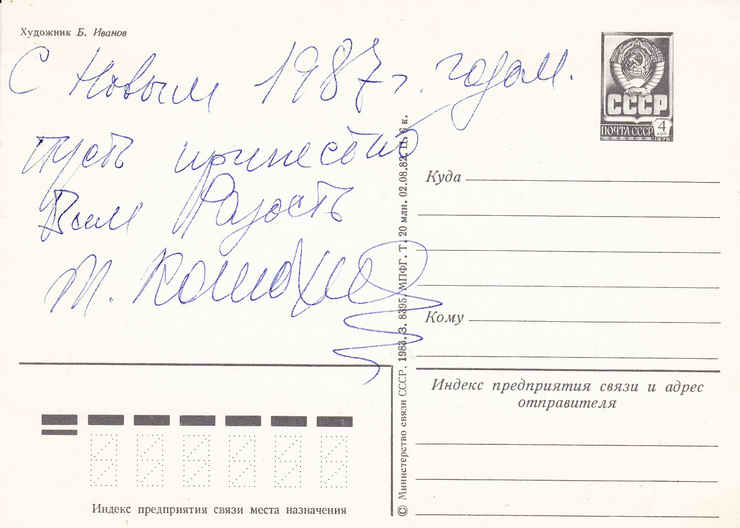 Художник Б. Иванов
С Новым 1987 г. годом.
Пусть принесет
Вам Радость
Т.
СССР
ПОЧТА СССР 4
Куда
Кому
Индекс предприятия связи и адрес
отправителя
Индекс предприятия связи места назначения
© Министерство связи СССР. 1983. З. 8395. МПФГ. Т. 20 млн. 02.08.82. Ц. 6 к.